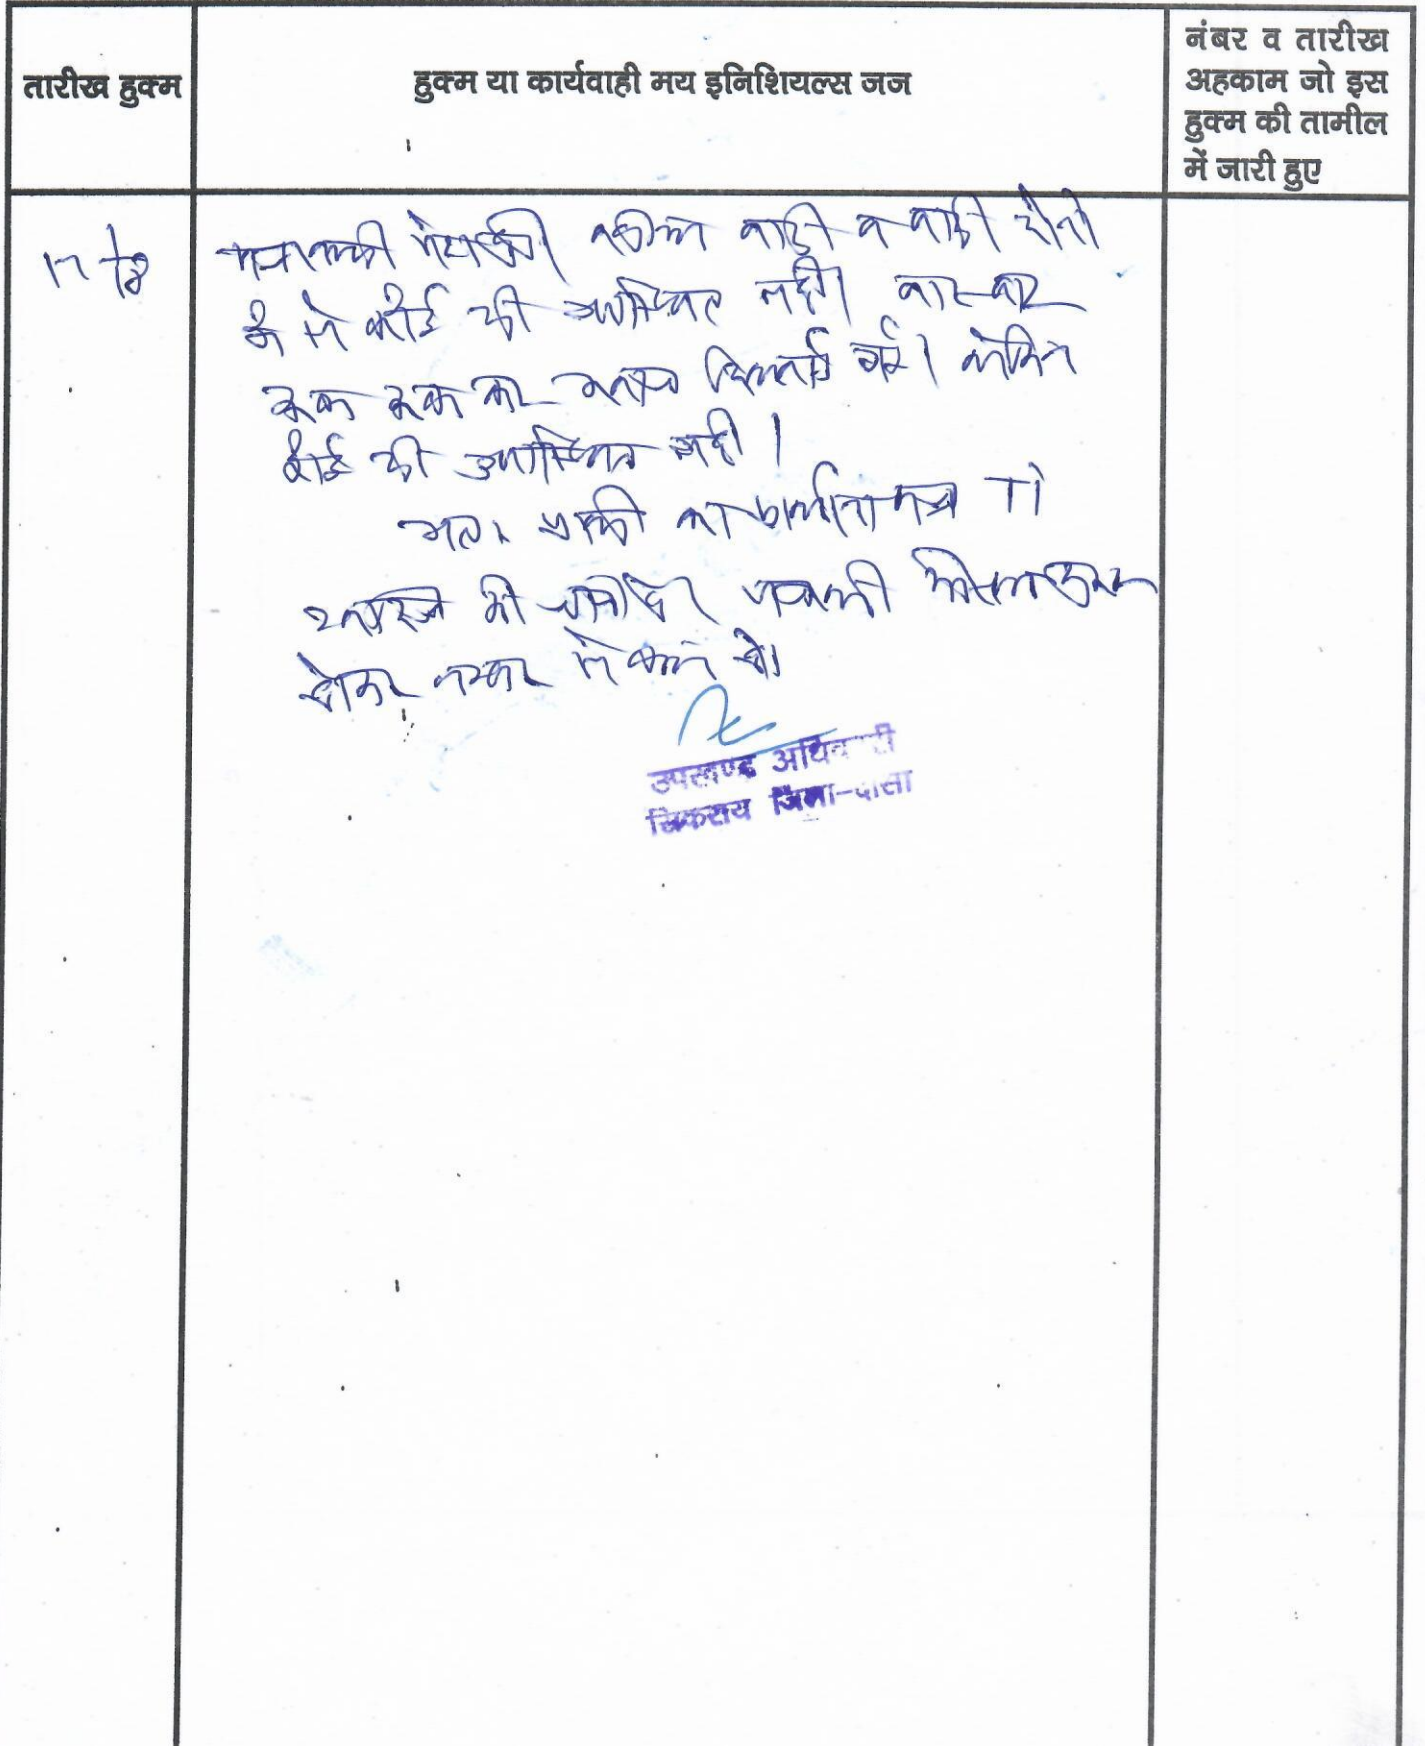 तारीख हुक्म
हुक्म या कार्यवाही मय इनिशियल्स जज
नंबर व तारीख
अहकाम जो इस
हुक्म की तामील
में जारी हुए
पत्रावली पेश हुई। वकील वादी व वादी दोनों
में से कोई भी उपस्थित नहीं। बार-बार
रुक रुक कर आवाज दिलाई गई। लेकिन
कोई भी उपस्थित नहीं।
अतः प्रार्थी का प्रार्थना पत्र TI
खारिज की जाती है। पत्रावली फैसल शुमार
होकर नम्बर से कम हो।
उपखण्ड अधिकारी
सिकराय जिला-दौसा